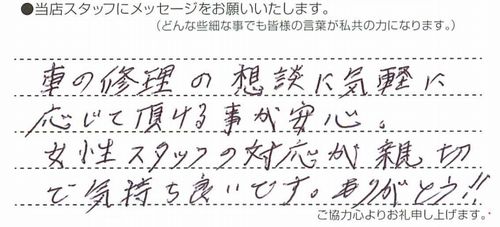 ●当店スタッフにメッセージをお願いいたします。
(どんな些細な事でも皆様の言葉が私共の力になります。)
車の修理の想談に気軽に
応じて頂ける事が安心。
女性スタッフの対応が親切
で気持ち良いです。ありがとう!!
ご協力心よりお礼申し上げます。